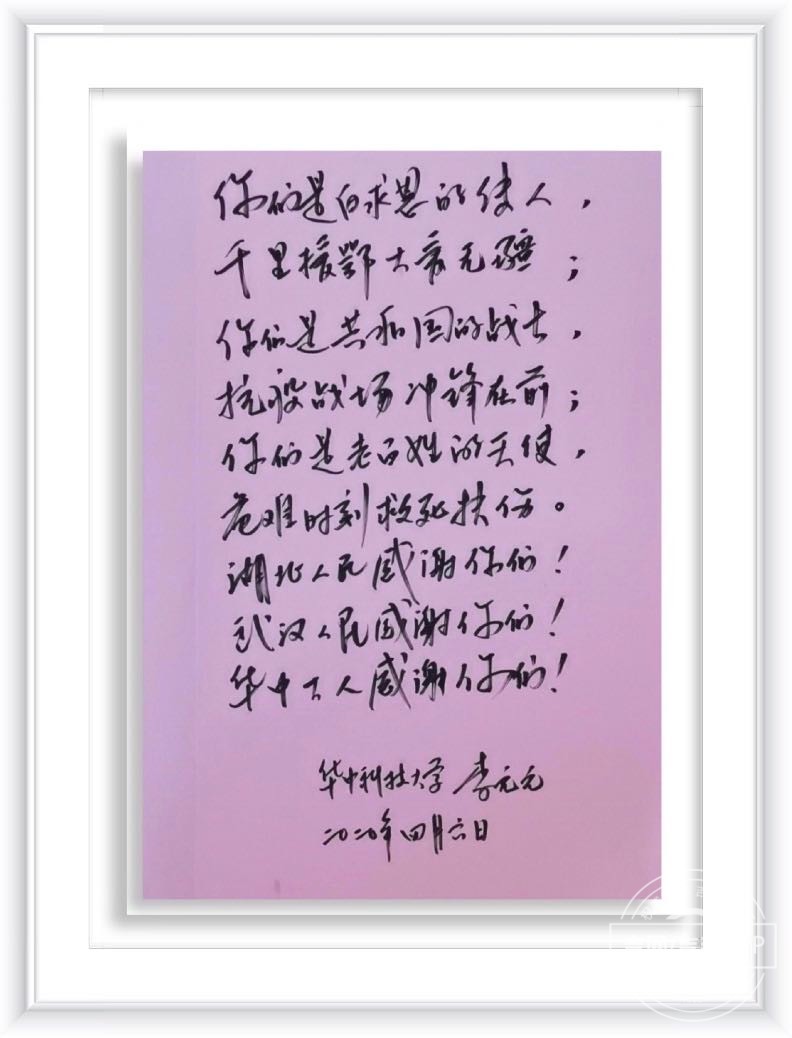 你们是白求恩的传人，
千里援鄂大爱无疆；
你们是共和国的战士，
抗疫战场冲锋在前；
你们是老百姓的天使，
危难时刻救死扶伤。
湖北人民感谢你们！
武汉人民感谢你们！
华中大人感谢你们！
华中科技大学 李元元
二〇二〇年四月六日